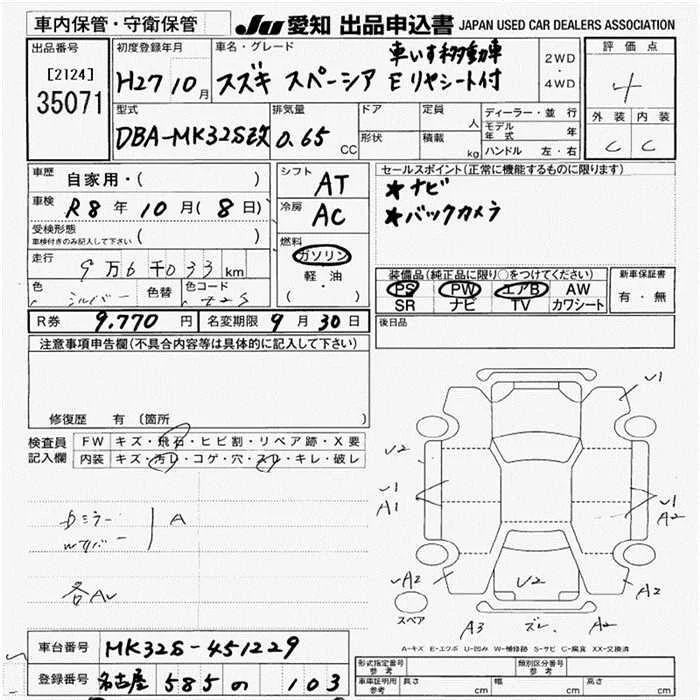 車内保管・守衛保管 JU 愛知 出品申込書 JAPAN USED CAR DEALERS ASSOCIATION
出品番号 [2124] 35071
初度登録年月 H27 10月
車名・グレード スズキ スペーシア 車いす移動車 E リヤシート付
2WD ・ 4WD
評価点 4
外装 内装
C C
型式 DBA-MK32S改
排気量 0.65 CC
ドア 形状
定員 人 積載 kg
ディーラー・並行
モデル年式 年
ハンドル 左・右
車歴 自家用・( )
車検 R8年10月(8日)
受検形態 車検付きのみ記入して下さい ( )
走行 9万6千033km
色 シルバー 色替 色コード
シフト AT
冷房 AC
燃料 ガソリン 軽・油 ( ・ )
セールスポイント(正常に機能するものに限ります)
★ナビ
★バックカメラ
装備品(純正品に限り○をつけてください)
PS PW エアB AW
SR ナビ TV カワシート
新車保証書 有・無
R券 9.770円 名変期限 9月30日
後日品
注意事項申告欄(不具合内容等は具体的に記入して下さい)
修復歴 有 (箇所 )
検査員記入欄
FW キズ・飛石・ヒビ割・リペア跡・X要
内装 キズ・汚レ・コゲ・穴・スレ・キレ・破レ
Dミラー
A
各AV
V1
V2
V1 A1
V1 A2
A2
V2
A2
スペア
A3 ズレ. A2
A-キズ E-エクボ U-凹み W-補修跡 S-サビ C-腐食 XX-交換済
車台番号 MK32S-451229
登録番号 名古屋 585 の 103
形式指定番号 参考
類別区分番号 参考
車庫証明用 参考 長さ cm 巾 cm 高さ cm